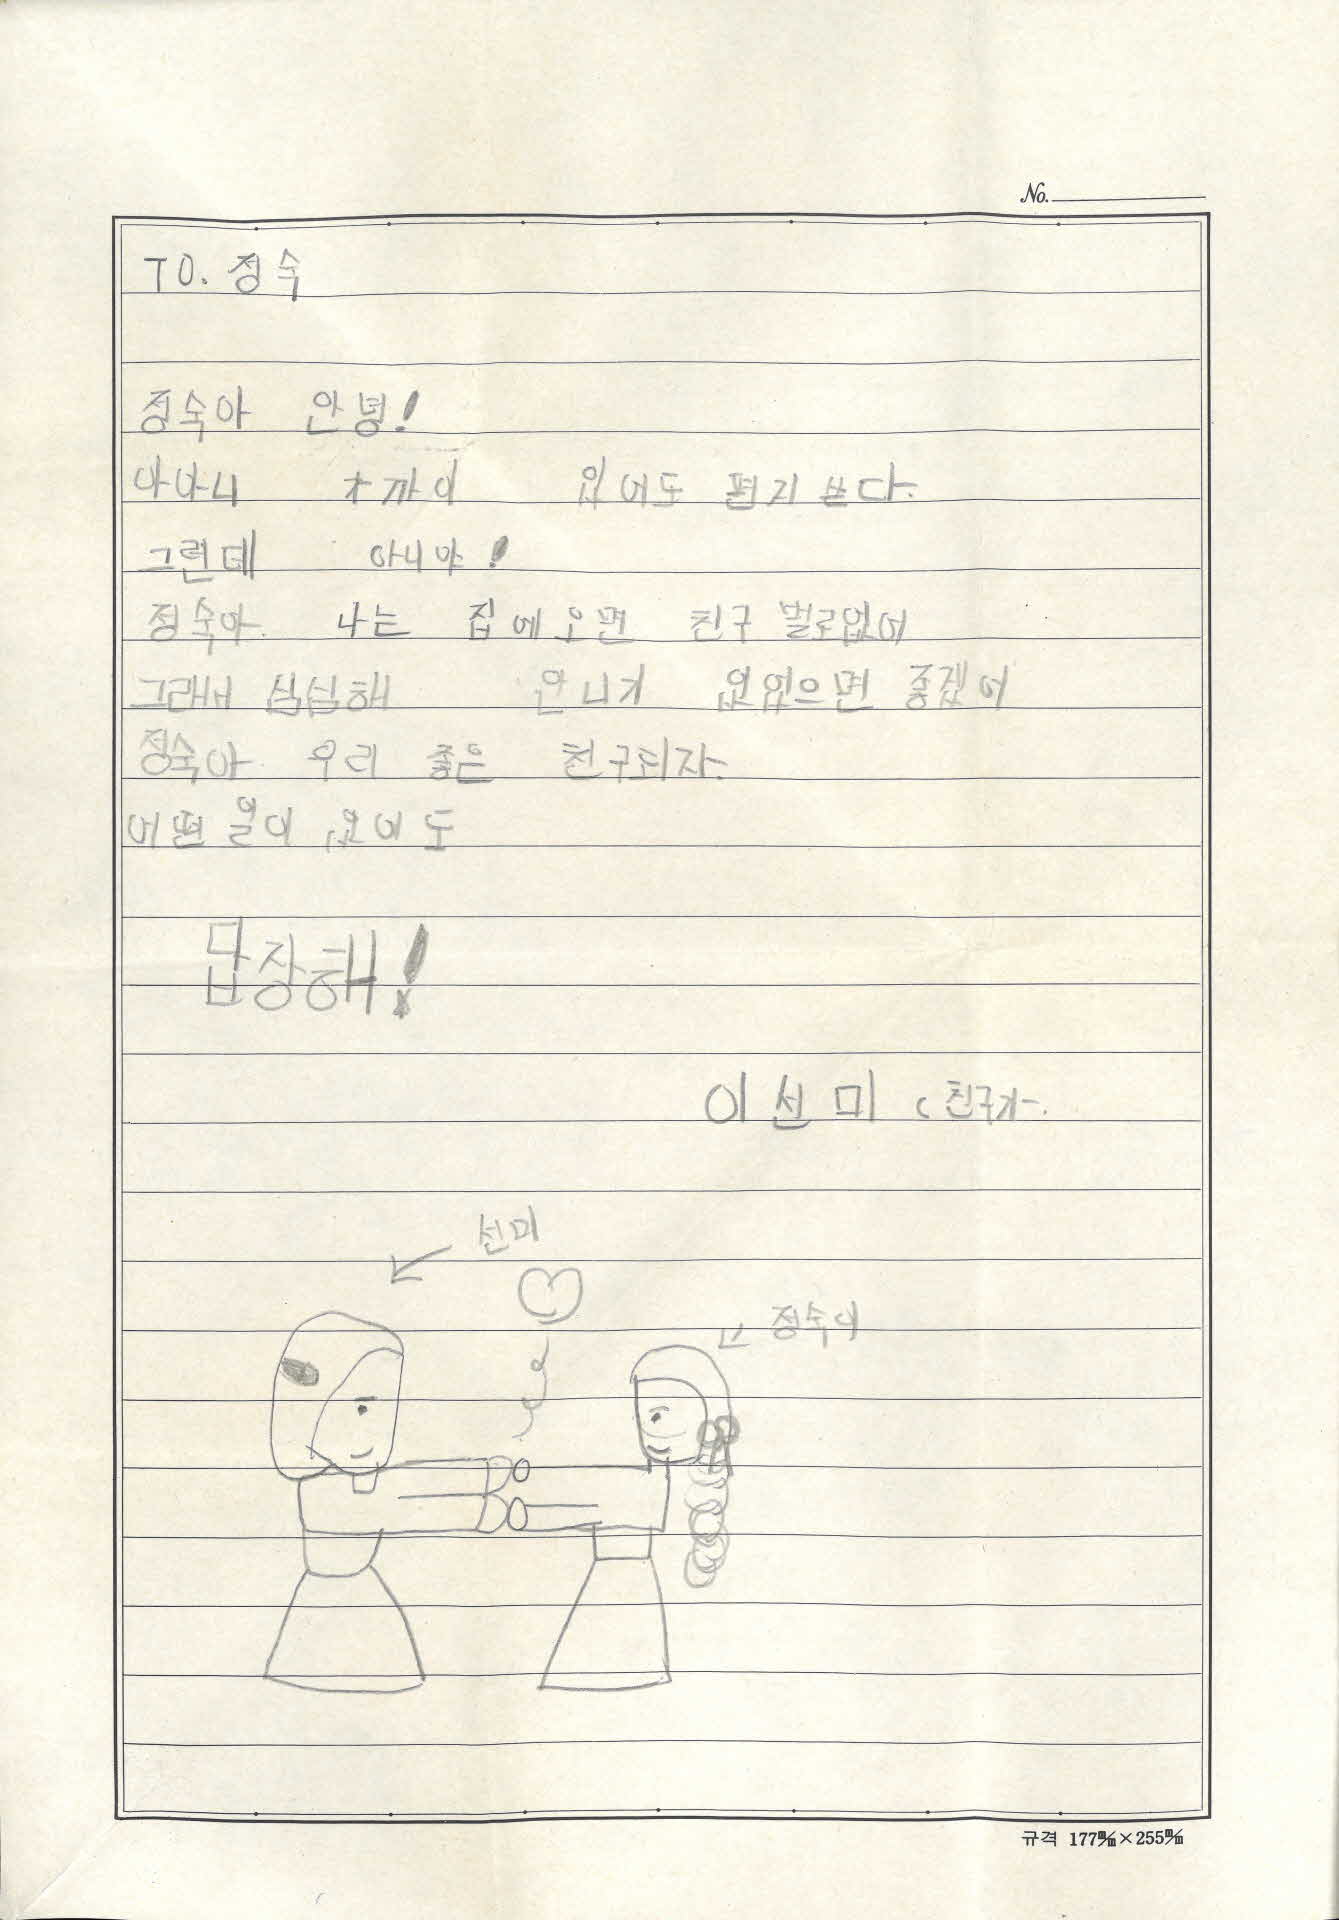 No.
TO. 정숙
정숙아 안녕!
있어도 편지쓴다.
그런데 아니야!
정숙아 나는 집에오면 친구 별로없어
그래서 심심해 으면 좋겠어
정숙아 우리 좋은 친구되자.
어떤일이 있어도
답장해!
이선미 친구가.
선미
정숙이
규격 177㎜×255㎜